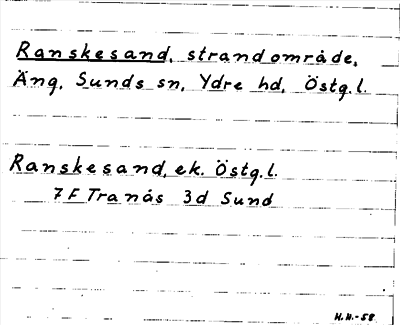 Ranskesand, strandområde,
Äng, Sunds sn, Ydre hd, Östg.l.
Ranskesand, ek. Östg.l.
7 F Tranås 3d Sund
H.H.-58